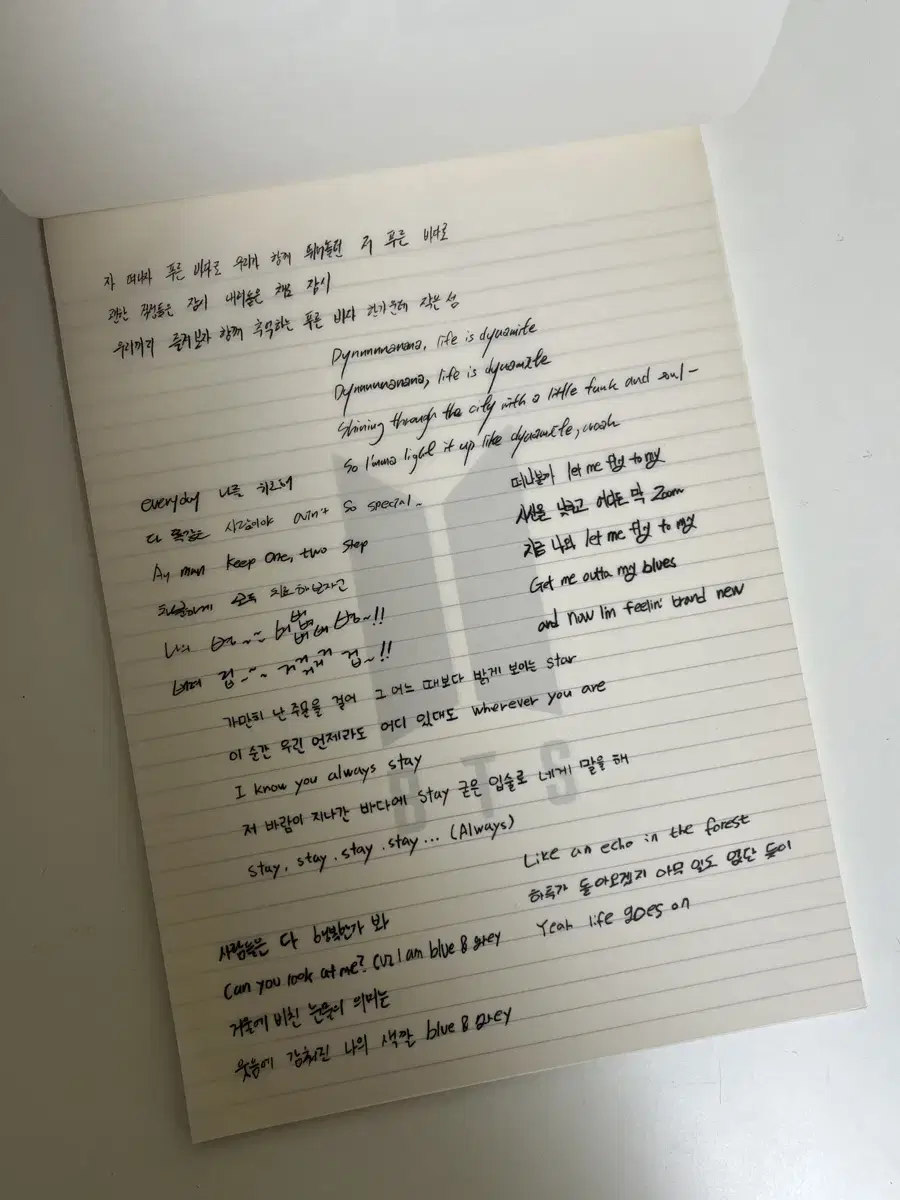 자 떠나자 푸른 바다로 우리가 함께 뛰어놀던 저 푸른 바다로
괜한 걱정들은 잠시 내려놓은 채로 잠시
우리끼리 즐겨보자 함께 추억하는 푸른 바다 한가운데 작은 섬
Dynnnnnanana, life is dynamite
Dynnnnnanana, life is dynamite
Shining through the city with a little funk and soul-
So I'mma light it up like dynamite, woah
everyday 나를 위로해
다 똑같은 사람이야 ain't so special
Ay man keep one, two step
차분하게 모두 치료해보자고
나의
떠나볼까 let me fly to my
시선을 낮추고 어디든 막 zoom
지금 나와 let me fly to my
Get me outta my blues
and now I'm feelin' brand new
가만히 난 주문을 걸어 그 어느 때보다 밝게 보이는 star
이 순간 우린 언제라도 어디 있대도 wherever you are
I know you always stay
저 바람이 지나간 바다에 stay 굳은 입술로 네게 말을 해
stay, stay.stay.stay... (Always)
Like an echo in the forest
하루가 돌아오겠지 아무 일도 없단 듯이
Yeah life goes on
사람들은 다 행복한가 봐
Can you look at me? Cuz I am blue & grey
거울에 비친 눈물의 의미는
웃음에 감춰진 나의 색깔 blue & grey
BTS